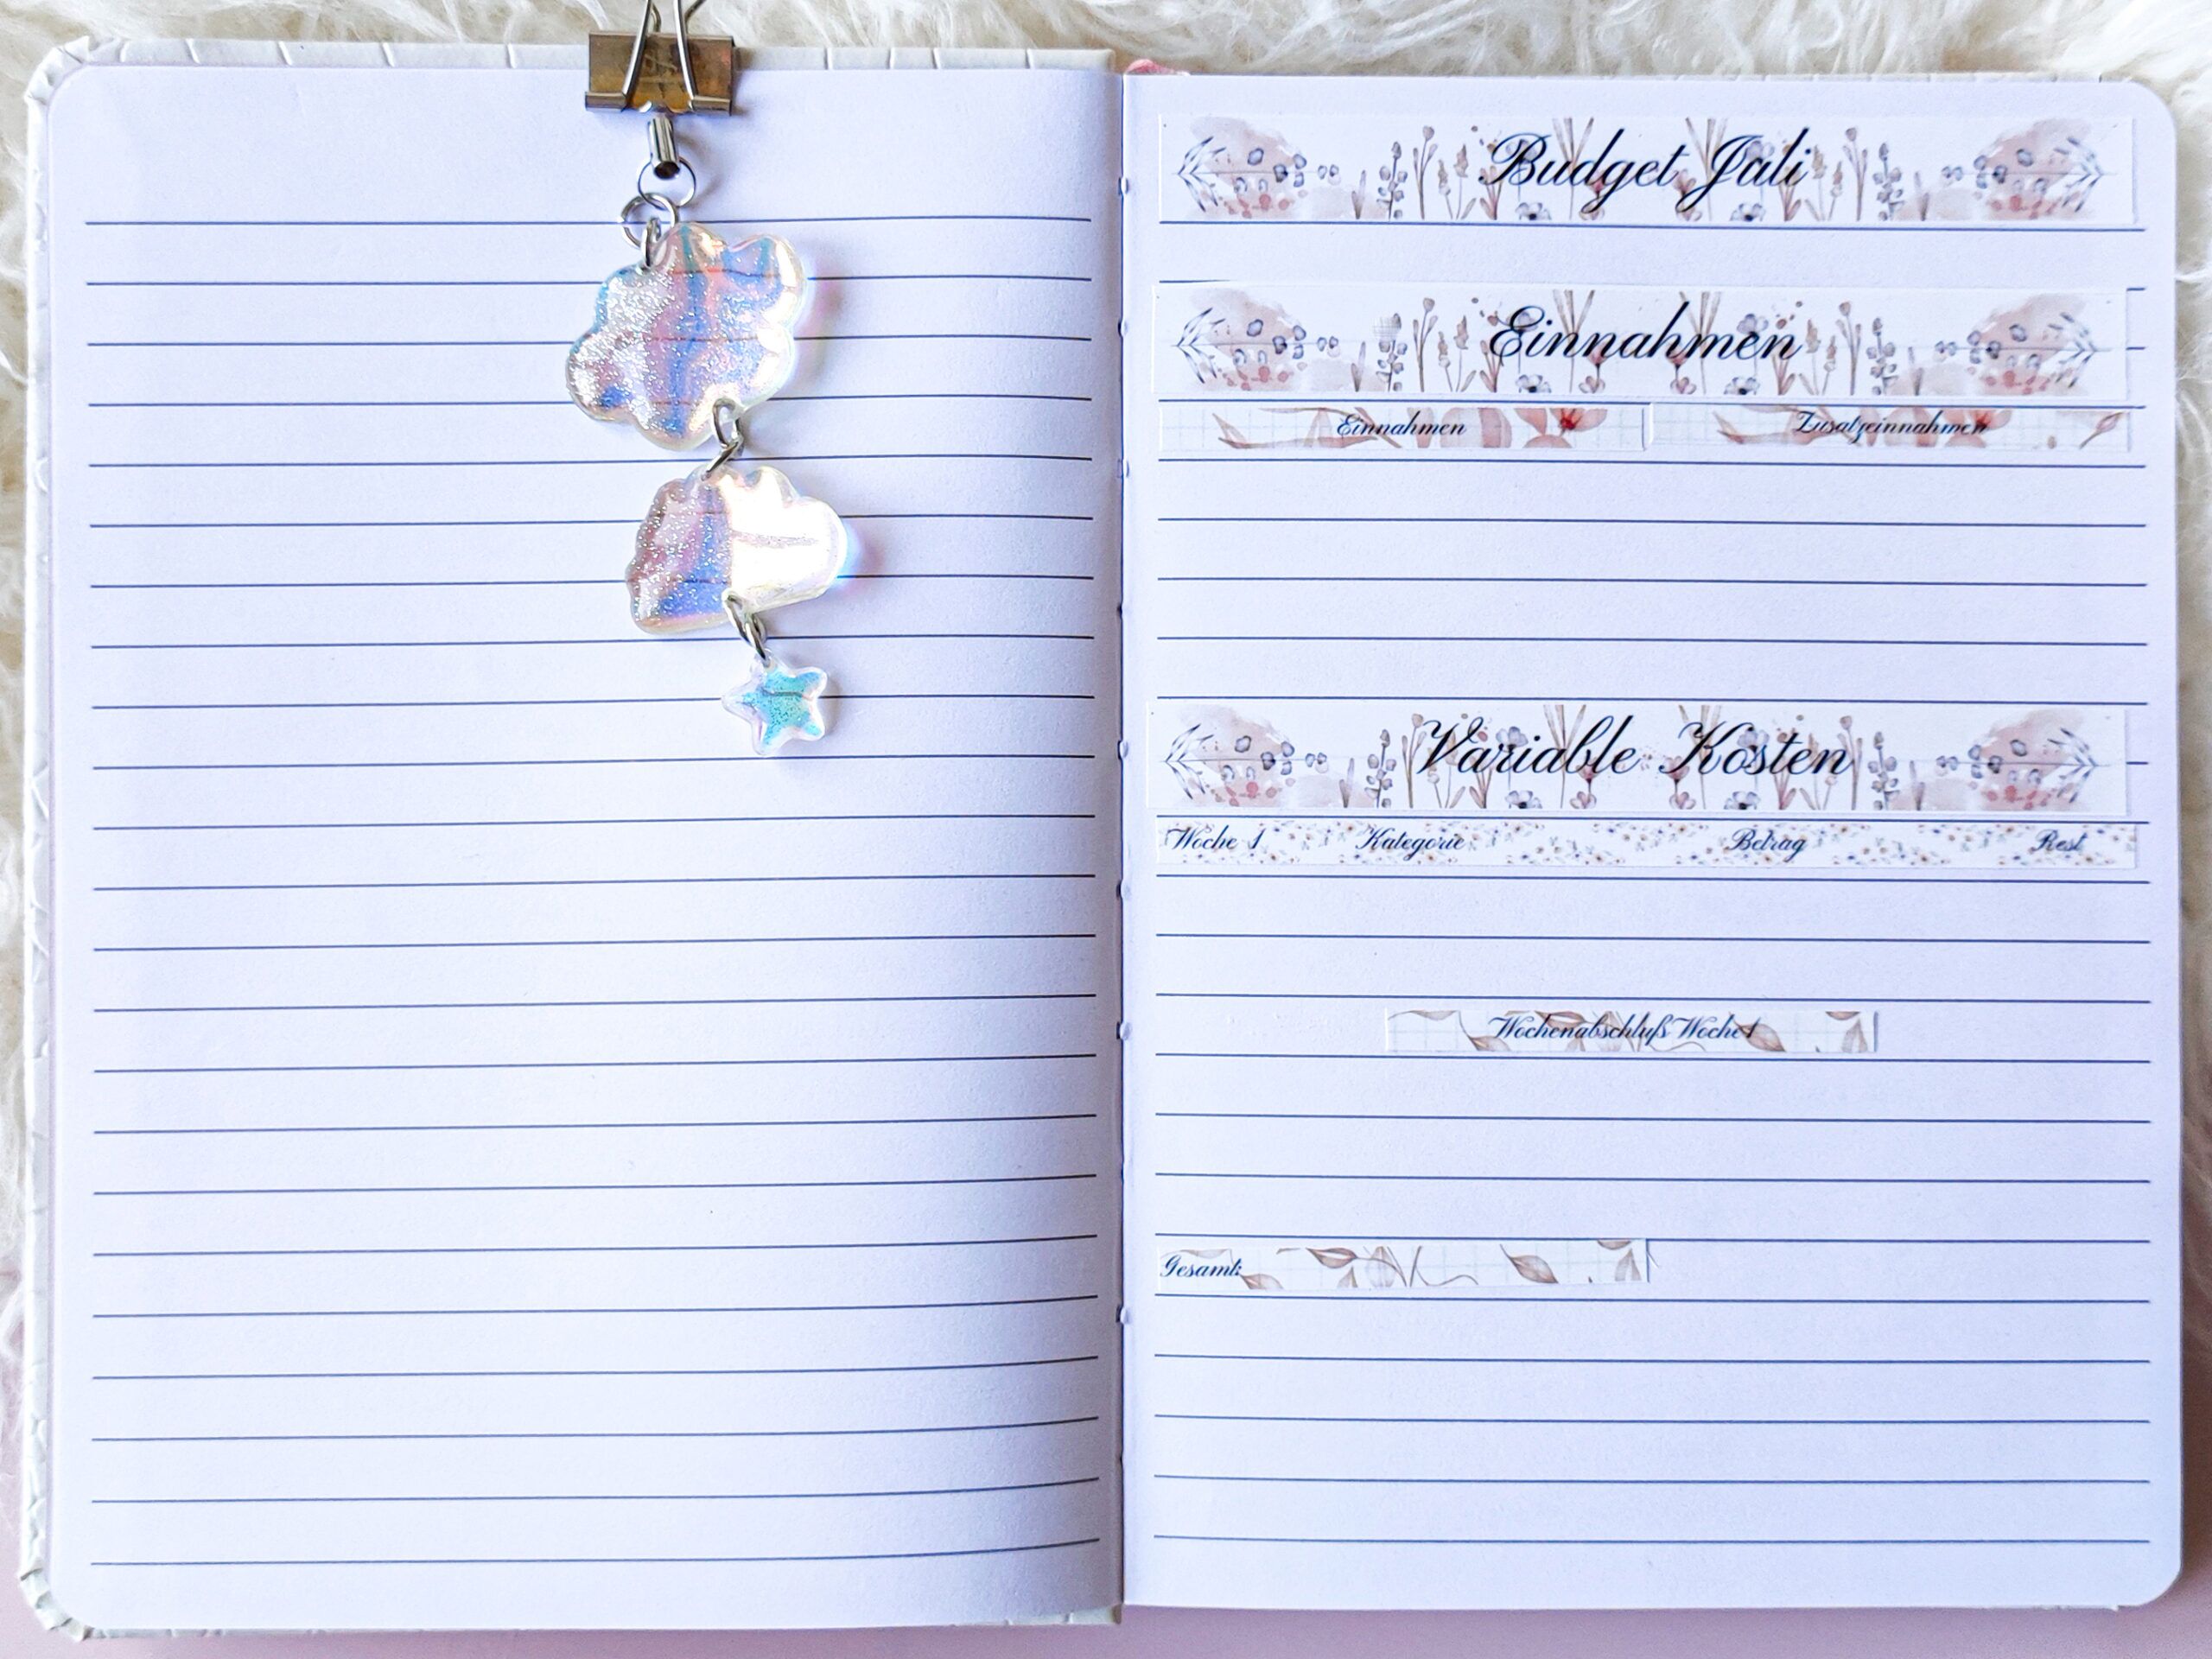 Budget Juli
Einnahmen
Einnahmen Zusatzeinnahmen
Variable Kosten
Woche 1 Kategorie Betrag Rest
Wochenabschluß Woche1
Gesamt: